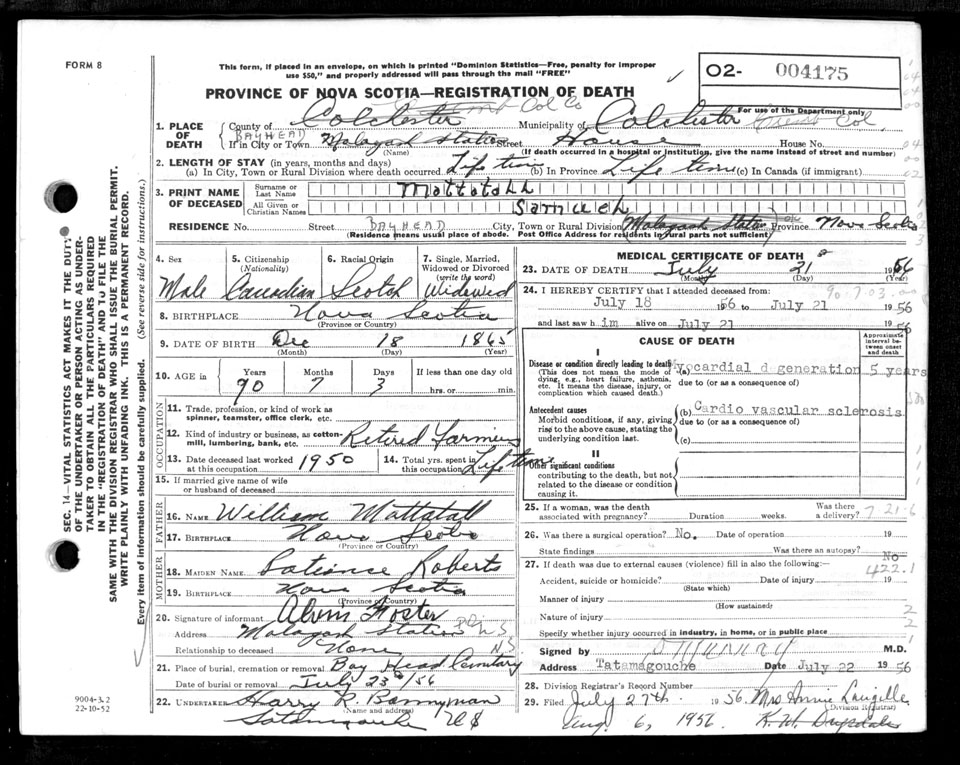 FORM 8
This form, if placed in an envelope, on which is printed "Dominion Statistics—Free, penalty for improper
use $50," and properly addressed will pass through the mail "FREE"
02- 004175
For use of the Department only
PROVINCE OF NOVA SCOTIA—REGISTRATION OF DEATH
Col Co
1. PLACE OF DEATH
County of Colchester Municipality of Colchester Col.
BAYHEAD
If in City or Town Malagash Station Street House No.
(Name) (If death occurred in a hospital or institution, give the name instead of street and number)
2. LENGTH OF STAY (in years, months and days)
(a) In City, Town or Rural Division where death occurred Life time (b) In Province Life time (c) In Canada (if immigrant)
3. PRINT NAME OF DECEASED
Surname or Last Name Mattatall
All Given or Christian Names Samuel
RESIDENCE No. Street BAYHEAD City, Town or Rural Division Malagash Station Nova Scotia
(Residence means usual place of abode. Post Office Address for residents in rural parts not sufficient)
4. Sex
Male
5. Citizenship
(Nationality)
Canadian
6. Racial Origin
Scotch
7. Single, Married,
Widowed or Divorced
(write the word)
Widowed
8. BIRTHPLACE Nova Scotia
(Province or Country)
9. DATE OF BIRTH Dec 18 1865
(Month) (Day) (Year)
10. AGE in Years Months Days If less than one day old
90 7 3 hrs. or min.
OCCUPATION
11. Trade, profession, or kind of work as
spinner, teamster, office clerk, etc.
12. Kind of industry or business, as cotton-
mill, lumbering, bank, etc. Retired Farming
13. Date deceased last worked
at this occupation 1950
14. Total yrs. spent in
this occupation Life time
15. If married give name of wife
or husband of deceased
FATHER
16. NAME William Mattatall
17. BIRTHPLACE Nova Scotia
(Province or Country)
MOTHER
18. MAIDEN NAME Patience Roberts
19. BIRTHPLACE Nova Scotia
(Province or Country)
20. Signature of informant Alvin Foster
Address Malagash Station N.S
Relationship to deceased None
21. Place of burial, cremation or removal Bay Head Cemetary
Date of burial or removal July 23 /56
22. UNDERTAKER Harry R. Bonnyman
(Name and address)
Tatamagouche N S
MEDICAL CERTIFICATE OF DEATH
23. DATE OF DEATH July 21 1956
(Month) (Day) (Year)
24. I HEREBY CERTIFY that I attended deceased from: 90.7.03.00
July 18 1956 to July 21 1956
and last saw him alive on July 21 1956
CAUSE OF DEATH
Approximate interval between onset and death
I
Disease or condition directly leading to death (a) Myocardial d generation 5 years
(This does not mean the mode of
dying, e.g., heart failure, asthenia,
etc. It means the disease, injury, or
complication which caused death.)
due to (or as a consequence of)
Antecedent causes
Morbid conditions, if any, giving
rise to the above cause, stating the
underlying condition last.
(b) Cardio vascular sclerosis
due to (or as a consequence of)
(c)
II
Other significant conditions
contributing to the death, but not
related to the disease or condition
causing it.
25. If a woman, was the death
associated with pregnancy? Duration weeks. Was there a delivery?
7 21-6
26. Was there a surgical operation? No. Date of operation 19
State findings Was there an autopsy? No
27. If death was due to external causes (violence) fill in also the following:—
422.1
Accident, suicide or homicide? Date of injury 19
(State which)
Manner of injury
(How sustained)
Nature of injury
Specify whether injury occurred in industry, in home, or in public place
Signed by M.D.
Address Tatamagouche Date July 22 1956
28. Division Registrar's Record Number
29. Filed July 27th. 1956. Mrs Annie Langille
(Division Registrar)
Aug 6, 1956 K. W. Drysdale
SEC. 14—VITAL STATISTICS ACT MAKES IT THE DUTY
OF THE UNDERTAKER OR PERSON ACTING AS UNDER-
TAKER TO OBTAIN ALL THE PARTICULARS REQUIRED
IN THE "REGISTRATION OF DEATH" AND TO FILE THE
SAME WITH THE DIVISION REGISTRAR WHO SHALL ISSUE THE BURIAL PERMIT.
WRITE PLAINLY WITH UNFADING INK. THIS IS A PERMANENT RECORD.
Every item of information should be carefully supplied. (See reverse side for instructions.)
9004-3.2
22-10-52